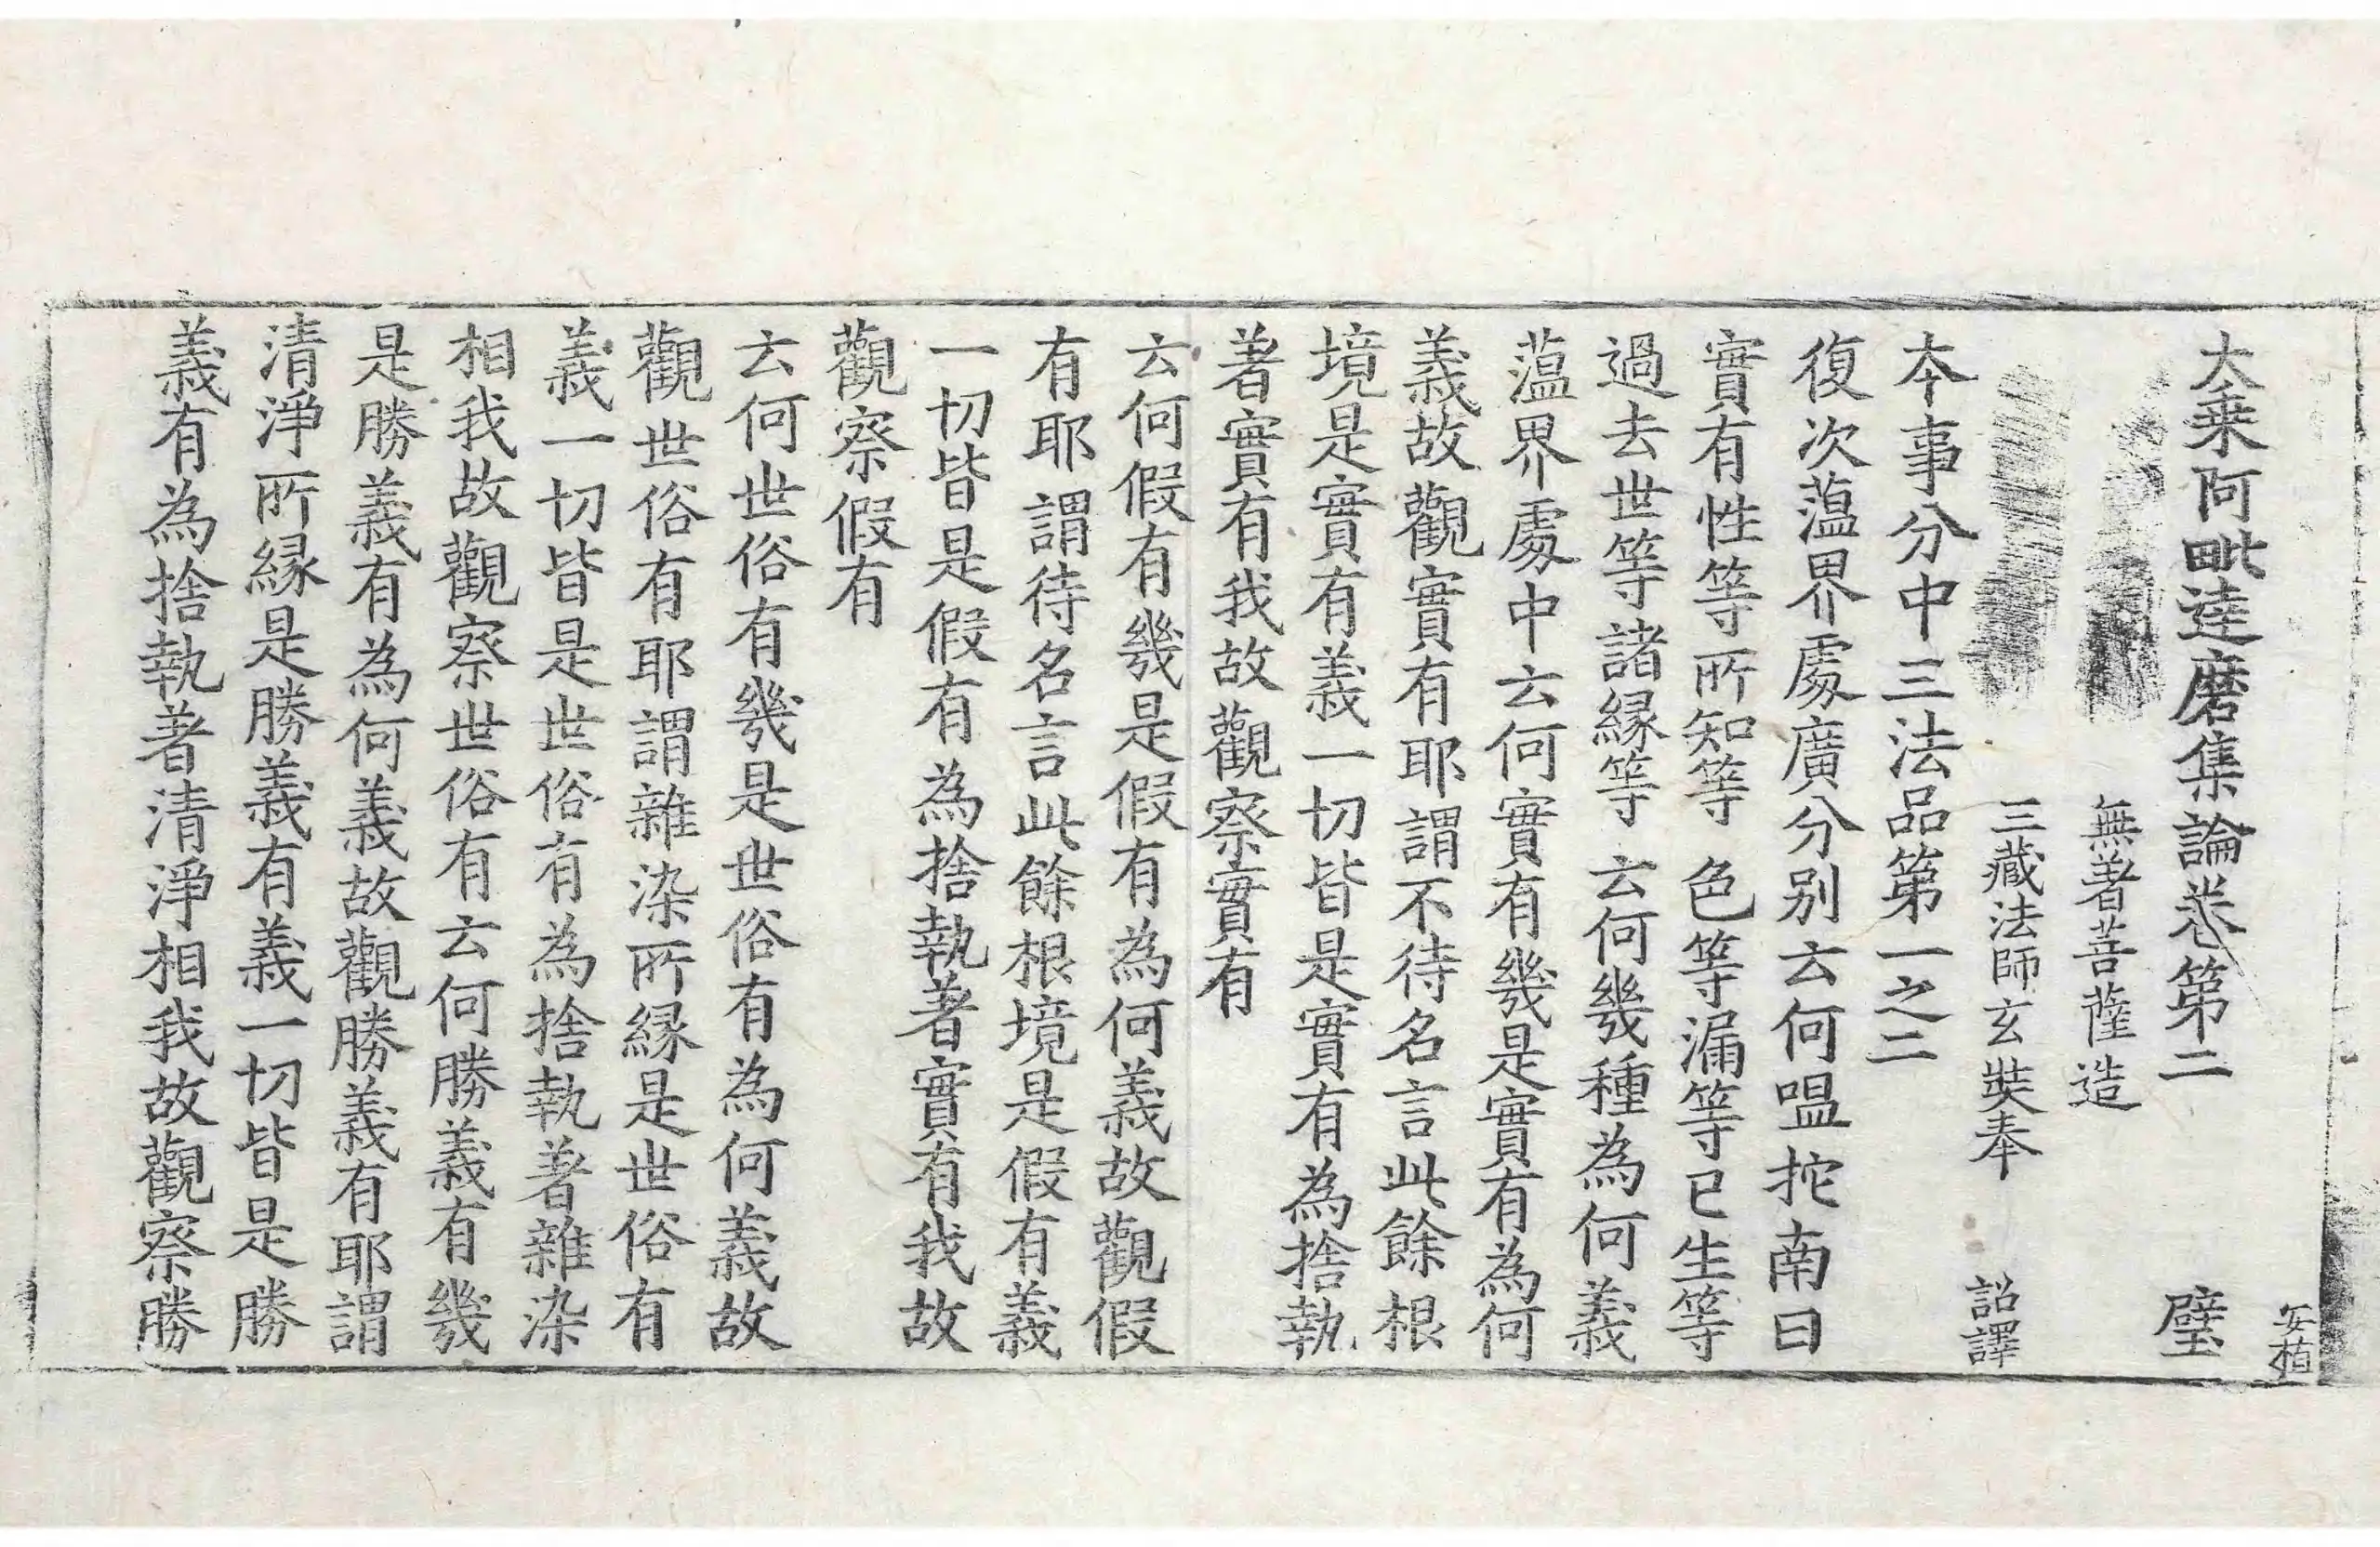 安植
大乗阿毗達磨集論卷第二 璧
無著菩薩造
三藏法師玄奘奉 詔譯
本事分中三法品第一之二
復次蕰界處廣分别云何嗢拕南曰
實有性等所知等 色等漏等已生等
過去世等諸縁等 云何幾種為何義
蕰界處中云何實有幾是實有為何
義故觀實有耶謂不待名言此餘根
境是實有義一切皆是實有為捨執
著實有我故觀察實有
云何假有幾是假有為何義故觀假
有耶謂待名言此餘根境是假有義
一切皆是假有有為捨執著實有我故
觀察假有
云何世俗有幾是世俗有為何義故
觀世俗有耶謂雜染所縁是世俗有
義一切皆是世俗有為捨執著雜染
相我故觀察世俗有云何勝義有幾
是勝義有為何義故觀勝義有耶謂
清淨所縁是勝義有義一切皆是勝
義有為捨執著清淨相我故觀察勝